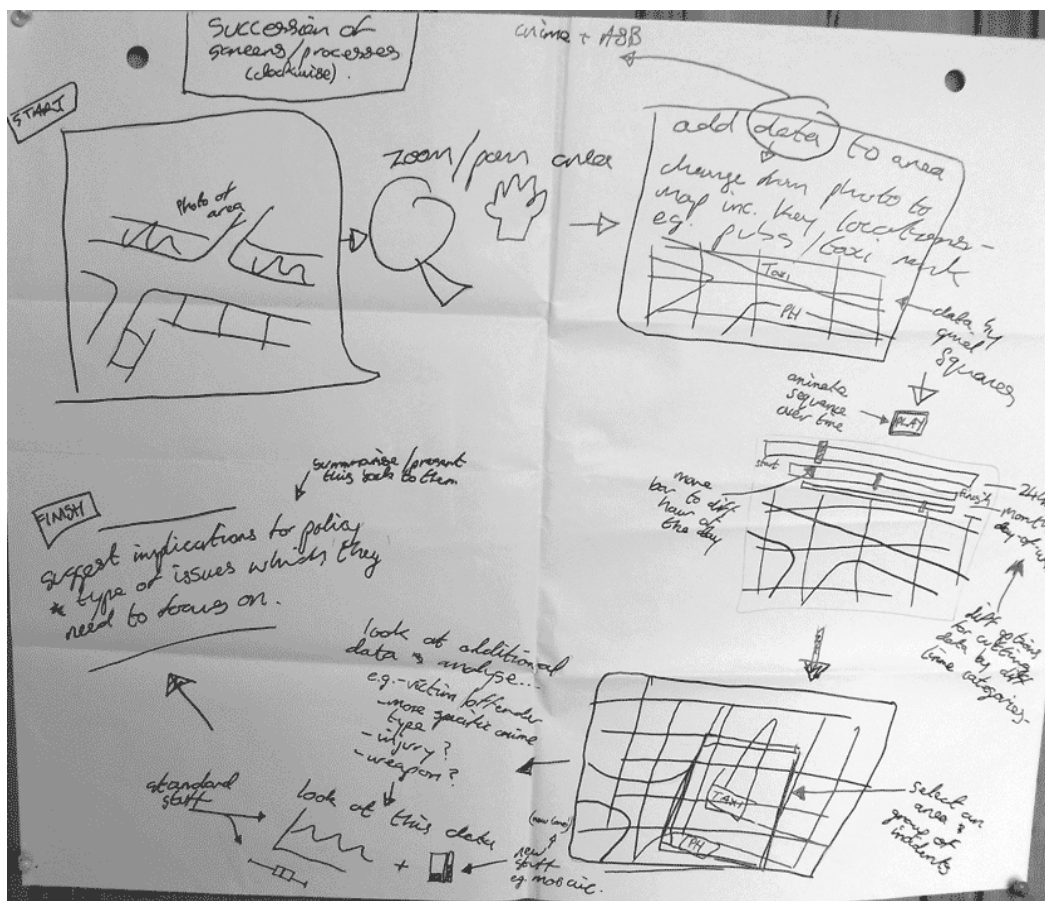 Succession of
screens/processes
(clockwise).
START
Photo of
area
zoom/pan area
crime + ASB
add data to area
change from photo to
map inc. key locations -
eg. pubs/taxi rank
Taxi
PH
data by
grid
squares
animate
sequence
over time
PLAY
start
finish
24hr
month
day of
move
bar to diff
hour of
the day
diff options
for cutting
data by diff
time categories -
TAXI
PH
select an
area &
group of
incidents
look at additional
data & analyse...
e.g. - victim/offender
- more specific crime
type
- injury?
- weapon?
look at this data
standard
stuff
+
new
stuff
eg. mosaic.
FINISH
summarise/present
this back to them
suggest implications for policy
* type of issues which they
need to focus on.